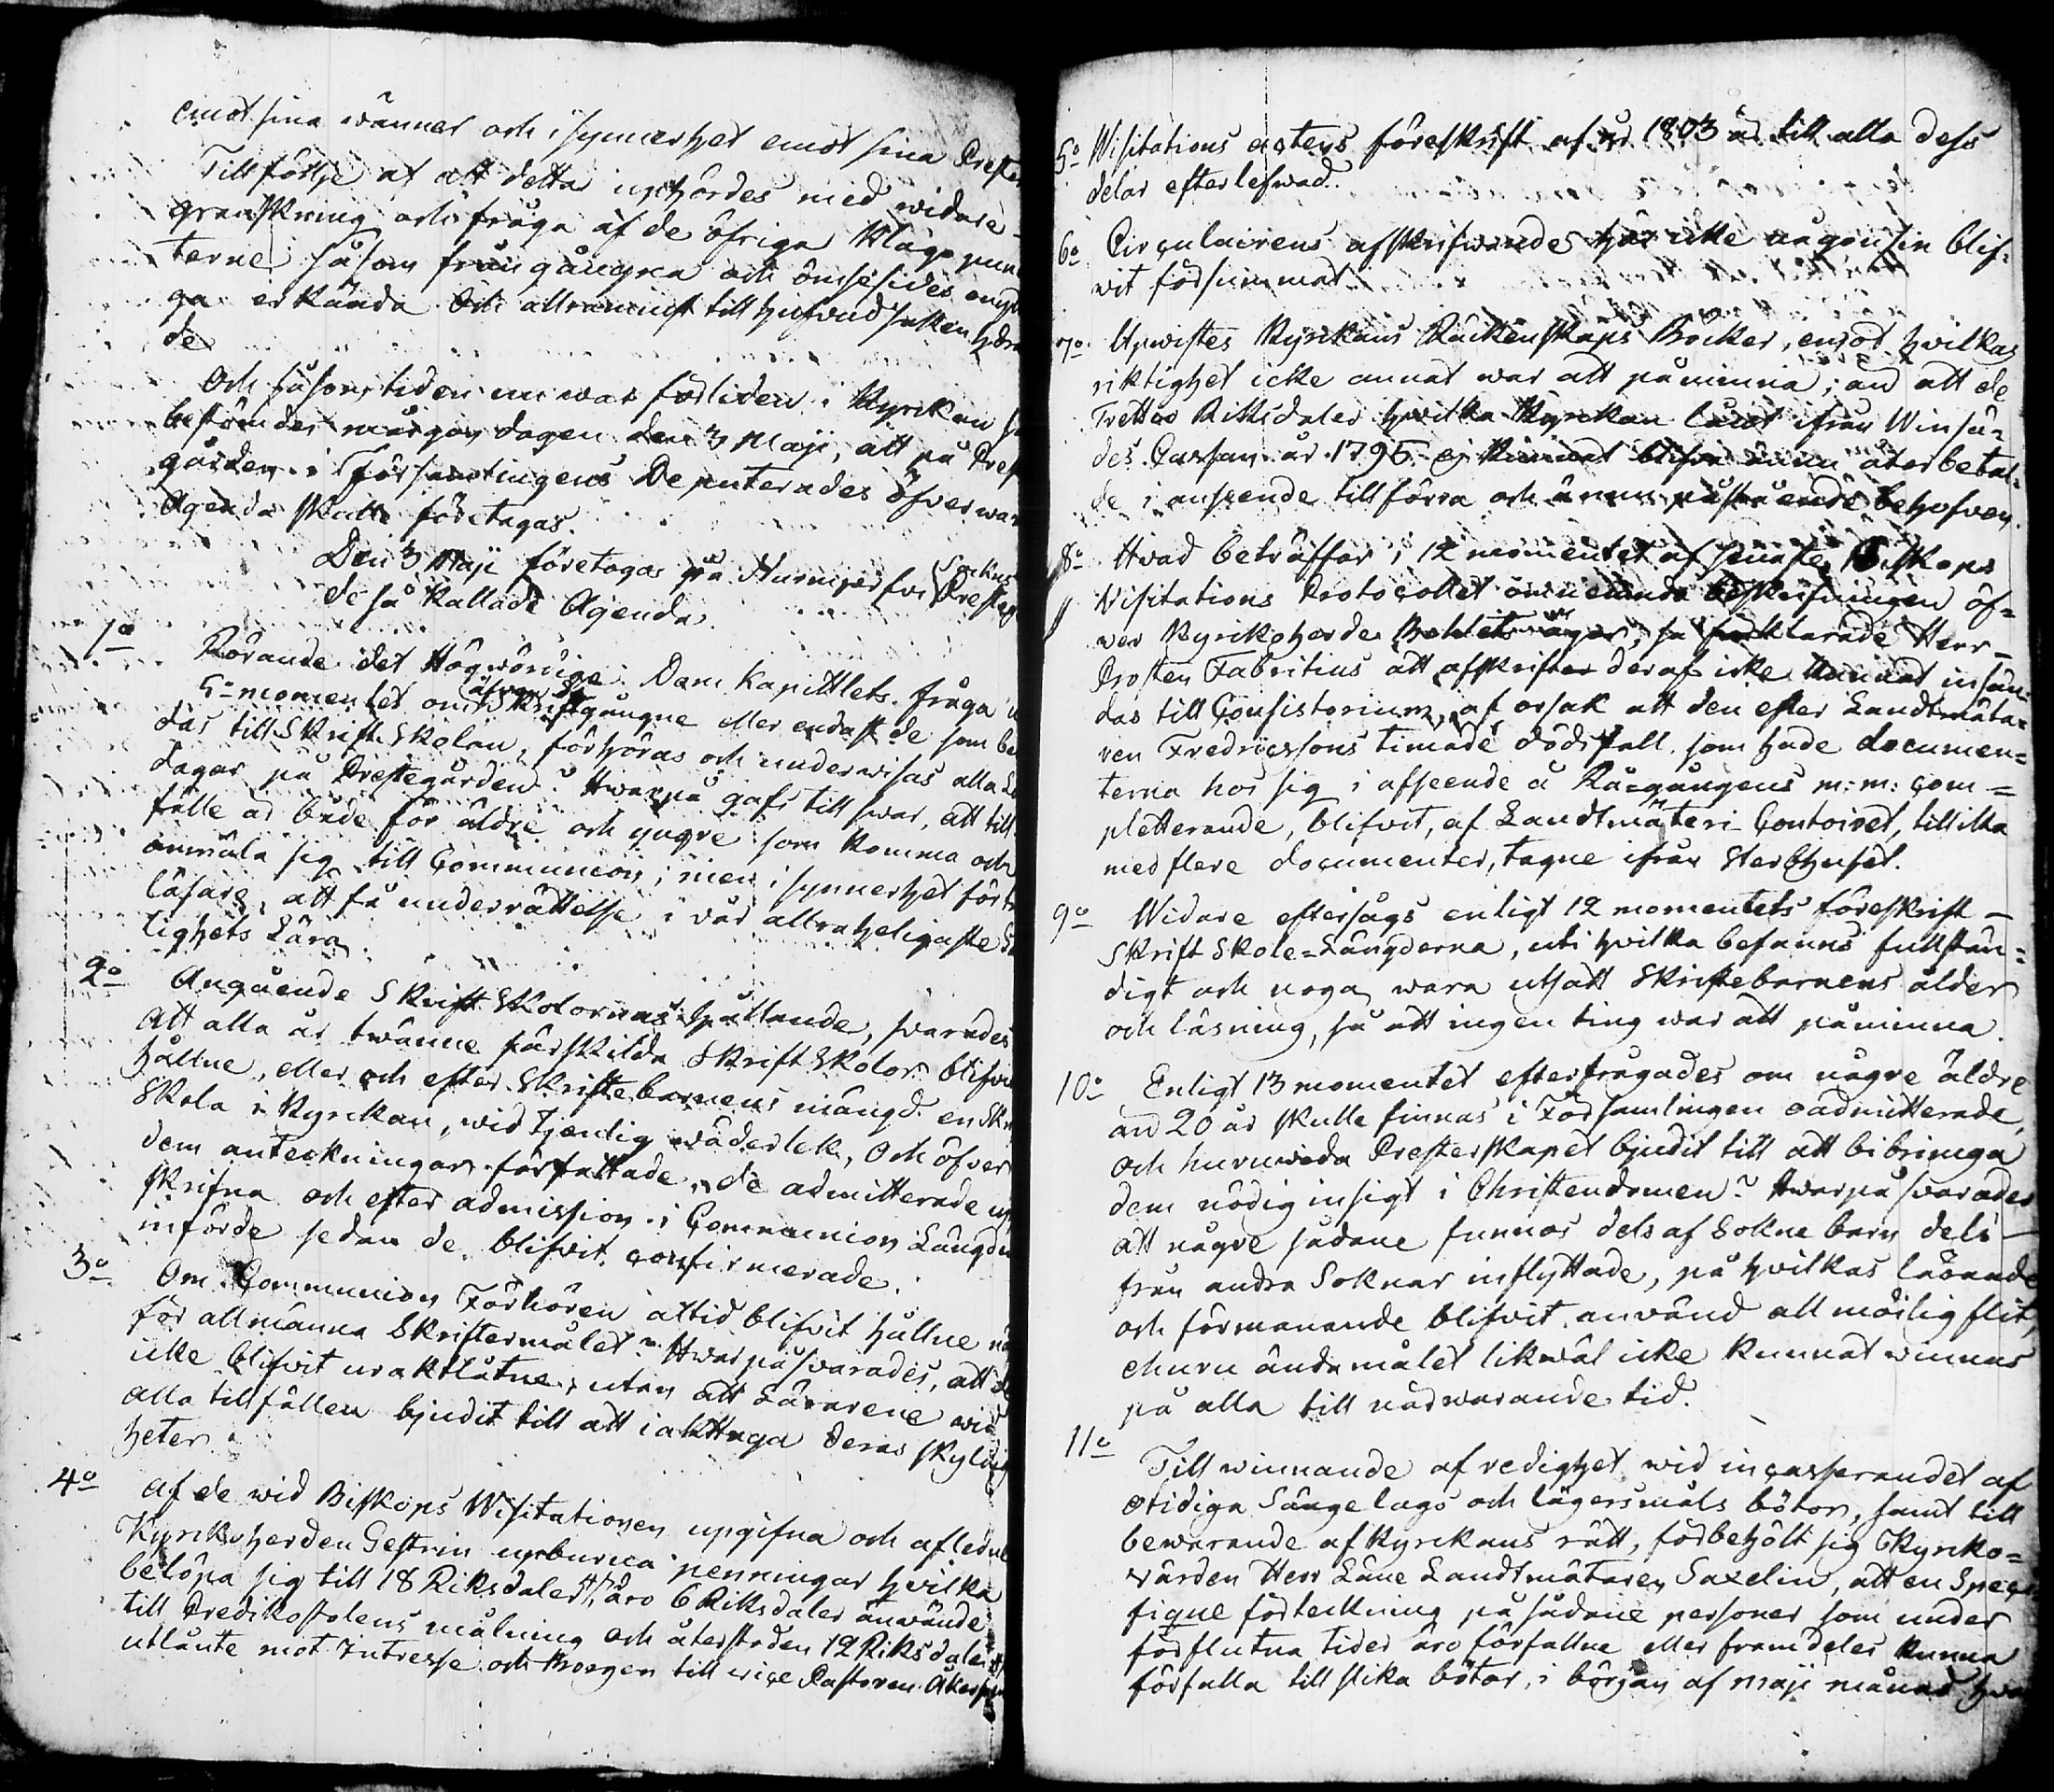 emot sina wänner och i synnerhet emot sina Preste
Till följe af att detta uphördes med widare
granskning och fråga af de öfriga Klago pun
terne såsom från gångna och ömsesides ong
ga erkända och allraminst till hufvudsaken höra
de
Och såsom tiden nu war förliden i Kyrkan
bestämdes morgon dagen den 3 Maji, att på Prest
gården i Församlingens Deputerades öfverwar
Agenda skulle företagas.
Den 3 Maji företogos på Nurmijerfvi Sockns Prestegå
de så kallade Agenda.
1o Rörande det Högwördige Dom Kapittlets fråga
5te momentet om äfven de Skriftgångne eller endast de som be
das till Skrift Skolan, förhöras och underwisas alla
dagar på Prestegården? Hwarpå gafs till swar, att till
fälle är både för äldre och yngre som komma och
anmäla sig till Communion; men i synnerhet för
läsare, att få underrättelse i wår allraheligaste
lighets Lära.
2o Angående Skrift Skolornas hållande, swarades
att alla år twänne särskilda Skrift Skolor blifwit
hållne, eller och efter Skriftebarnens mängd en
Skola i Kyrckan, wid tjenlig wäderlek, Och öfver
dem anteckningar författade, de admitterade
skrifna och efter admission i Communion Längden
införde sedan de blifvit confirmerade.
3o Om Communion Förhören altid blifvit hållne
för allmänna Skriftermålet? Hwarpå swarades, att de
icke blifvit uraktlåtne, utan att Lärarene wid
alla tillfällen bjudit till att iakttaga deras skyldig
heter.
4o Af de wid Biskops Wisitationen upgifna och af
Kyrkoherden Gestrin upburna penningar hvilka
belöpa sig till 18 Riksdaler, äro 6 Riksdaler använde
till Predikostolens målning och återstoden 12 Riksdaler
utlånte mot Intresse och Borgen till vice Pastoren Åker
5o Wisitations actens föreskrift af år 1803 är till alla dess
delar efterlefwad.
6o Circulairens afskrifwande har icke någonsin blif-
wit försummat.
7o Upwistes Kyrckans Räckenskaps Böcker, emot hvilkas
riktighet icke annat war att påminna, än att de
Trettio Riksdaler hvilka Kyrckan lånt ifrån Winså-
des Cassan år 1795 ej kunnat blifva ännu återbetal-
de i anseende till förra och ännu påstående behofven.
8o Hvad beträffar i 12 momentet af senaste Biskops
Visitations Protocollet omnämnda beskrifningen öf-
wer Kyrkoherde Bohlets ägor, så förklarade Herr
Prosten Fabritius att afskrifter deraf icke kunnat insän-
das till Consistorium, af orsak att den efter Landtmäta-
ren Fredricssons timade dödsfall som hade documen-
terna hos sig i afseende å Rågångens m: m: com-
pletterande, blifvit, af Landtmäteri Contoiret, tillika
med flere documenter, tagne ifrån Sterbhuset.
9o Widare eftersågs enligt 12 momentets föreskrift
Skrift Skole-Längderna, uti hvilka befanns fullstän-
digt och noga wara utsatt Skriftebarnens ålder
och läsning, så att ingen ting war att påminna.
10o Enligt 13 momentet efterfrågades om några äldre
än 20 år skulle finnas i Församlingen oadmitterade,
och huruwida Presterskapet bjudit till att bibringa
dem nödig insigt i Christendomen? Hwarpå swarades
att någre sådane funnos dels af Sokne barn dels
från andra Soknar inflyttade, på hvilkas lärande
och förmanande blifvit använd all möilig flit,
ehuru ändamålet likwäl icke kunnat winnas
på alla till närwarande tid.
11o Till winnande af redighet wid incasserandet af
otidiga Sängelags och lägersmåls böter, samt till
bewarande af Kyrckans rätt, förbehölt sig Kyrko-
värden Herr Läne Landtmätaren Saxelin, att en Speci
fique förteckning på sådane personer som under
förflutna tider äro förfallne eller framdeles kunna
förfalla till slika böter, i början af Maji månad hva